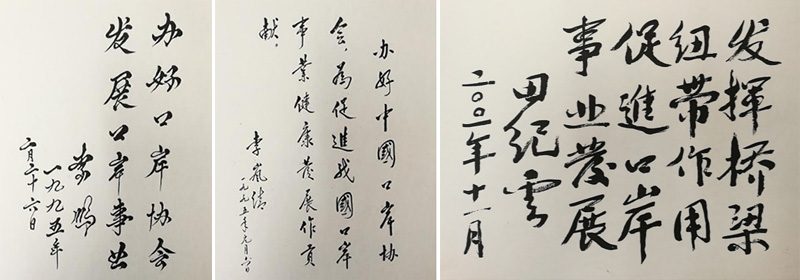 办好口岸协会
发展口岸事业
李鹏
一九九五年
六月二十六日
办好中國口岸协
会，為促進我國口岸
事業健康發展作貢
献。
李嵐清
一九九五年九月六日
发挥桥梁
纽带作用
促進口岸
事业發展
田紀雲
二〇〇一年十一月